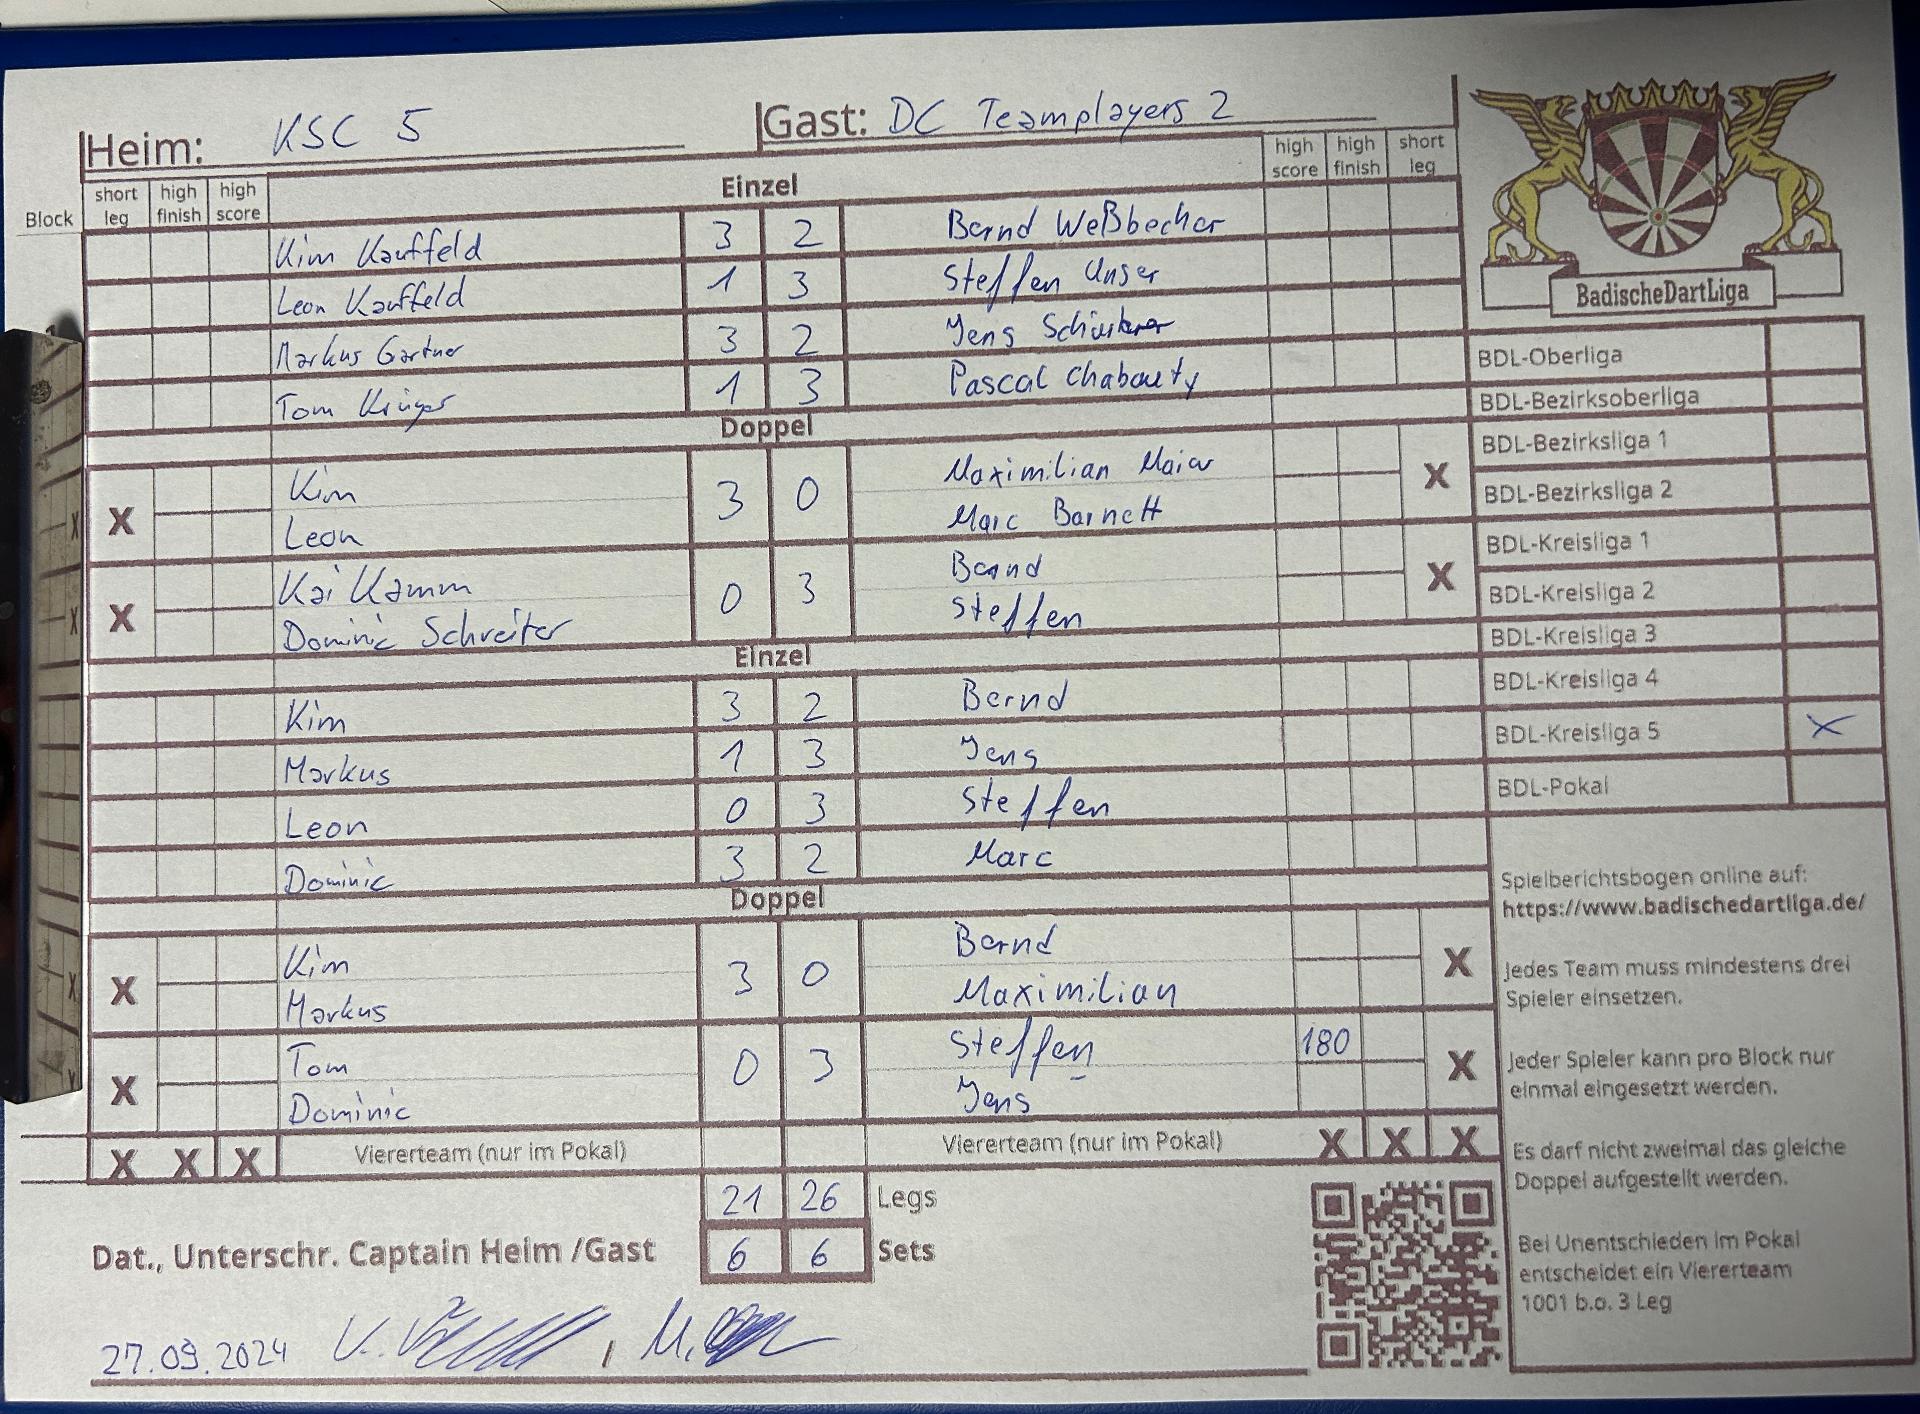 Heim: KSC 5 Gast: DC Teamplayers 2
Block short leg high finish high score Einzel high score high finish short leg
Kim Kauffeld 3 2 Bernd Weßbecher
Leon Kauffeld 1 3 Steffen Unser
Markus Gartner 3 2 Jens
Tom Krüger 1 3 Pascal Chabouty
Doppel
Kim 3 0 Maximilian Maier
X Leon Marc Barnett X
Kai Kamm 0 3 Bernd
X Dominic Schreiter Steffen X
Einzel
Kim 3 2 Bernd
Markus 1 3 Jens
Leon 0 3 Steffen
Dominic 3 2 Marc
Doppel
Kim 3 0 Bernd
X Markus Maximilian X
Tom 0 3 Steffen 180
X Dominic Jens X
X X X Viererteam (nur im Pokal) Viererteam (nur im Pokal) X X X
21 26 Legs
Dat., Unterschr. Captain Heim /Gast 6 6 Sets
27.09.2024
BadischeDartLiga
BDL-Oberliga
BDL-Bezirksoberliga
BDL-Bezirksliga 1
BDL-Bezirksliga 2
BDL-Kreisliga 1
BDL-Kreisliga 2
BDL-Kreisliga 3
BDL-Kreisliga 4
BDL-Kreisliga 5 X
BDL-Pokal
Spielberichtsbogen online auf:
https://www.badischedartliga.de/
Jedes Team muss mindestens drei
Spieler einsetzen.
Jeder Spieler kann pro Block nur
einmal eingesetzt werden.
Es darf nicht zweimal das gleiche
Doppel aufgestellt werden.
Bei Unentschieden im Pokal
entscheidet ein Viererteam
1001 b.o. 3 Leg